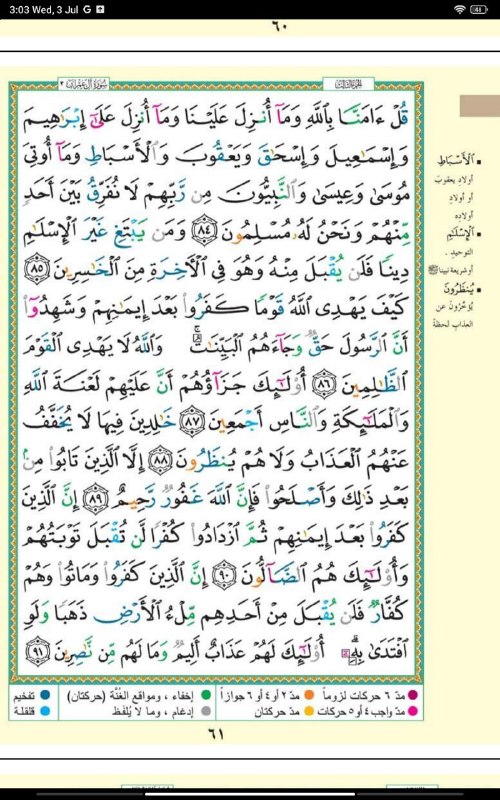 3:03 Wed, 3 Jul G
48
٦٠
سورة آل عمران ٣
الجزء الثالث
قُلْ ءَامَنَّا بِاللَّهِ وَمَا أُنزِلَ عَلَيْنَا وَمَا أُنزِلَ عَلَىٰ إِبْرَاهِيمَ
وَإِسْمَاعِيلَ وَإِسْحَاقَ وَيَعْقُوبَ وَالْأَسْبَاطِ وَمَا أُوتِيَ
مُوسَىٰ وَعِيسَىٰ وَالنَّبِيُّونَ مِن رَّبِّهِمْ لَا نُفَرِّقُ بَيْنَ أَحَدٍ
مِّنْهُمْ وَنَحْنُ لَهُ مُسْلِمُونَ ٨٤ وَمَن يَبْتَغِ غَيْرَ الْإِسْلَامِ
دِينًا فَلَن يُقْبَلَ مِنْهُ وَهُوَ فِي الْآخِرَةِ مِنَ الْخَاسِرِينَ ٨٥
كَيْفَ يَهْدِي اللَّهُ قَوْمًا كَفَرُوا بَعْدَ إِيمَانِهِمْ وَشَهِدُوا
أَنَّ الرَّسُولَ حَقٌّ وَجَاءَهُمُ الْبَيِّنَاتُ ۚ وَاللَّهُ لَا يَهْدِي الْقَوْمَ
الظَّالِمِينَ ٨٦ أُولَٰئِكَ جَزَاؤُهُمْ أَنَّ عَلَيْهِمْ لَعْنَةَ اللَّهِ
وَالْمَلَائِكَةِ وَالنَّاسِ أَجْمَعِينَ ٨٧ خَالِدِينَ فِيهَا لَا يُخَفَّفُ
عَنْهُمُ الْعَذَابُ وَلَا هُمْ يُنظَرُونَ ٨٨ إِلَّا الَّذِينَ تَابُوا مِن
بَعْدِ ذَٰلِكَ وَأَصْلَحُوا فَإِنَّ اللَّهَ غَفُورٌ رَّحِيمٌ ٨٩ إِنَّ الَّذِينَ
كَفَرُوا بَعْدَ إِيمَانِهِمْ ثُمَّ ازْدَادُوا كُفْرًا لَّن تُقْبَلَ تَوْبَتُهُمْ
وَأُولَٰئِكَ هُمُ الضَّالُّونَ ٩٠ إِنَّ الَّذِينَ كَفَرُوا وَمَاتُوا وَهُمْ
كُفَّارٌ فَلَن يُقْبَلَ مِنْ أَحَدِهِم مِّلْءُ الْأَرْضِ ذَهَبًا وَلَوِ
افْتَدَىٰ بِهِ ۗ أُولَٰئِكَ لَهُمْ عَذَابٌ أَلِيمٌ وَمَا لَهُم مِّن نَّاصِرِينَ ٩١
الْأَسْبَاطِ
أولادِ يعقوبَ
أو أولادِ
أولادِه
الْإِسْلَامِ
التوحيد .
أو شريعة نبينا ﷺ
يُنظَرُونَ
يُؤخَّرُونَ عن
العذاب لحظةً
مدّ ٦ حركات لزوماً مدّ ٢ أو ٤ أو ٦ جوازاً إخفاء ، ومواقع الغُنَّة (حركتان) تفخيم
مدّ واجب ٤ أو ٥ حركات مدّ حركتان إدغام ، وما لا يُلفَظ قلقلة
٦١